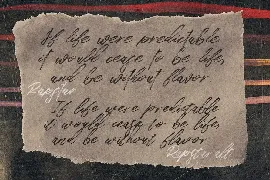 If life were predictable
it would cease to be life,
and be without flavor
Rapster
If life were predictable
it would cease to be life,
and be without flavor
Rapster alt